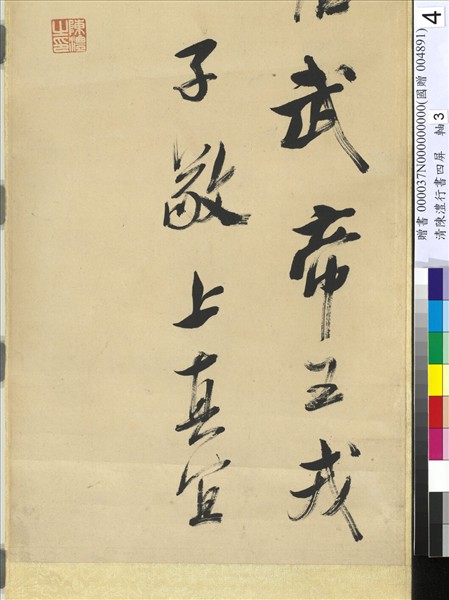 贈書 000037N000000000(國贈 004891) 4
清陳澧行書四屏 軸 3
武帝王戎
子敬上真宜
陳澧之印